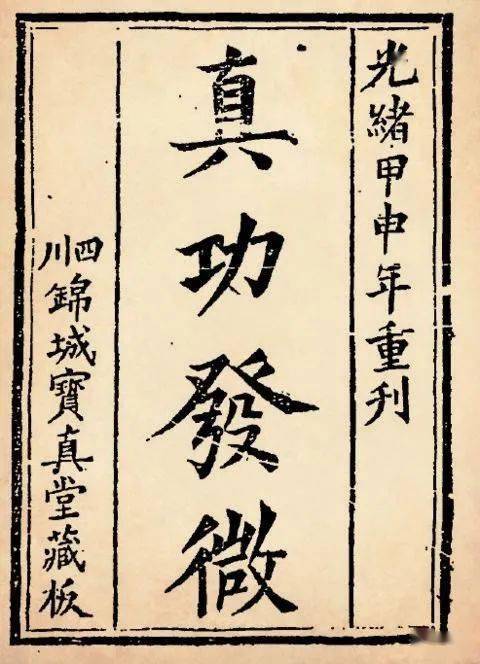 光緒甲申年重刊
真功發微
四川錦城寶真堂藏板